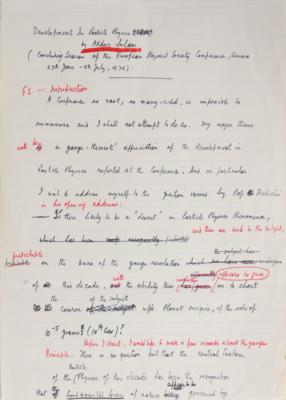 Developments In Particle Physics
by Abdus Salam
( Concluding Session of the European Physical Society Conference, Geneva
27th June - 4th July, 1979)
§1 -. Introduction
A Conference as vast, as many-sided, is impossible to
summarise and I shall not attempt to do so. My major theme
will be a gauge-theorist's appreciation of the development in
Particle Physics reported at the Conference. And in particular
I wish to address myself to the question raised by Prof
in his opening address:
Is there likely to be a "desert" in Particle Physics Phenomena,
and thus an end to the subject,
which has been
predictable
on the basis of the gauge revolution which
of this decade, with the ability this me to chart
appears to give
the course of the subject upto Planck energies, of the order of
10^-5 grams? (10^19 GeV)?
Before I start, I would like to make a few remarks about the gauge
Principle. There is no question but that the central feature
of the Particle Physics of this decade has been the recognition
that the fundamental forces of nature appear to be governed by